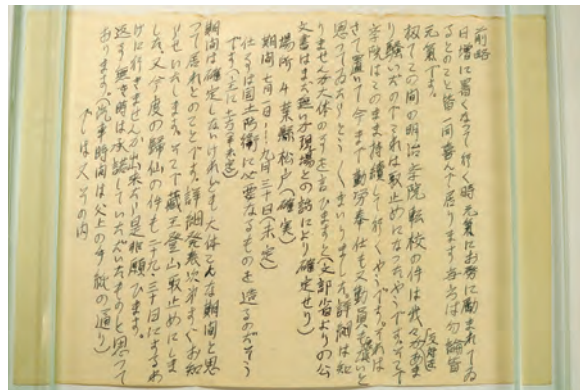 前略
日増に暑くなって行く時元気にお勞に勵まれてゐ
るとのこと皆一同喜んで居ります 当方は勿論皆
元気です。
扨てこの間の明治学院転校の件は我々があま
反対運
り騒いだのでそれは取止めになったやうです。そこで
学院はこのまま持續して行くやうです。それは
さて置いて 今まで勤労奉仕も又動員も遅いと
思ってゐたらとうとうくまいりました 詳細は知
りませんが大体のことを言ひますと(文部省よりの公
文書はまだ無いが現場との話により確定せり)
場所 千葉縣松戸(確実)
期間 七月一日―九月三十日(未定)
仕事は国土防衛に必要なるものを造るのださう
です(主に土方であらう)
期間は確定しないけれども大体こんな期間と思
って居れとのことです。詳細発表次第すぐお知
らせいたします。そこで藏王登山取止めにしま
した 又今度の歸仙の件も二十九、三十日にはちょっと
行きませんが出来たら是非願ひます。
返事無き時は承諾していただいたものと思って
居ります(汽車時間は父上の手紙の通り)
では又その内